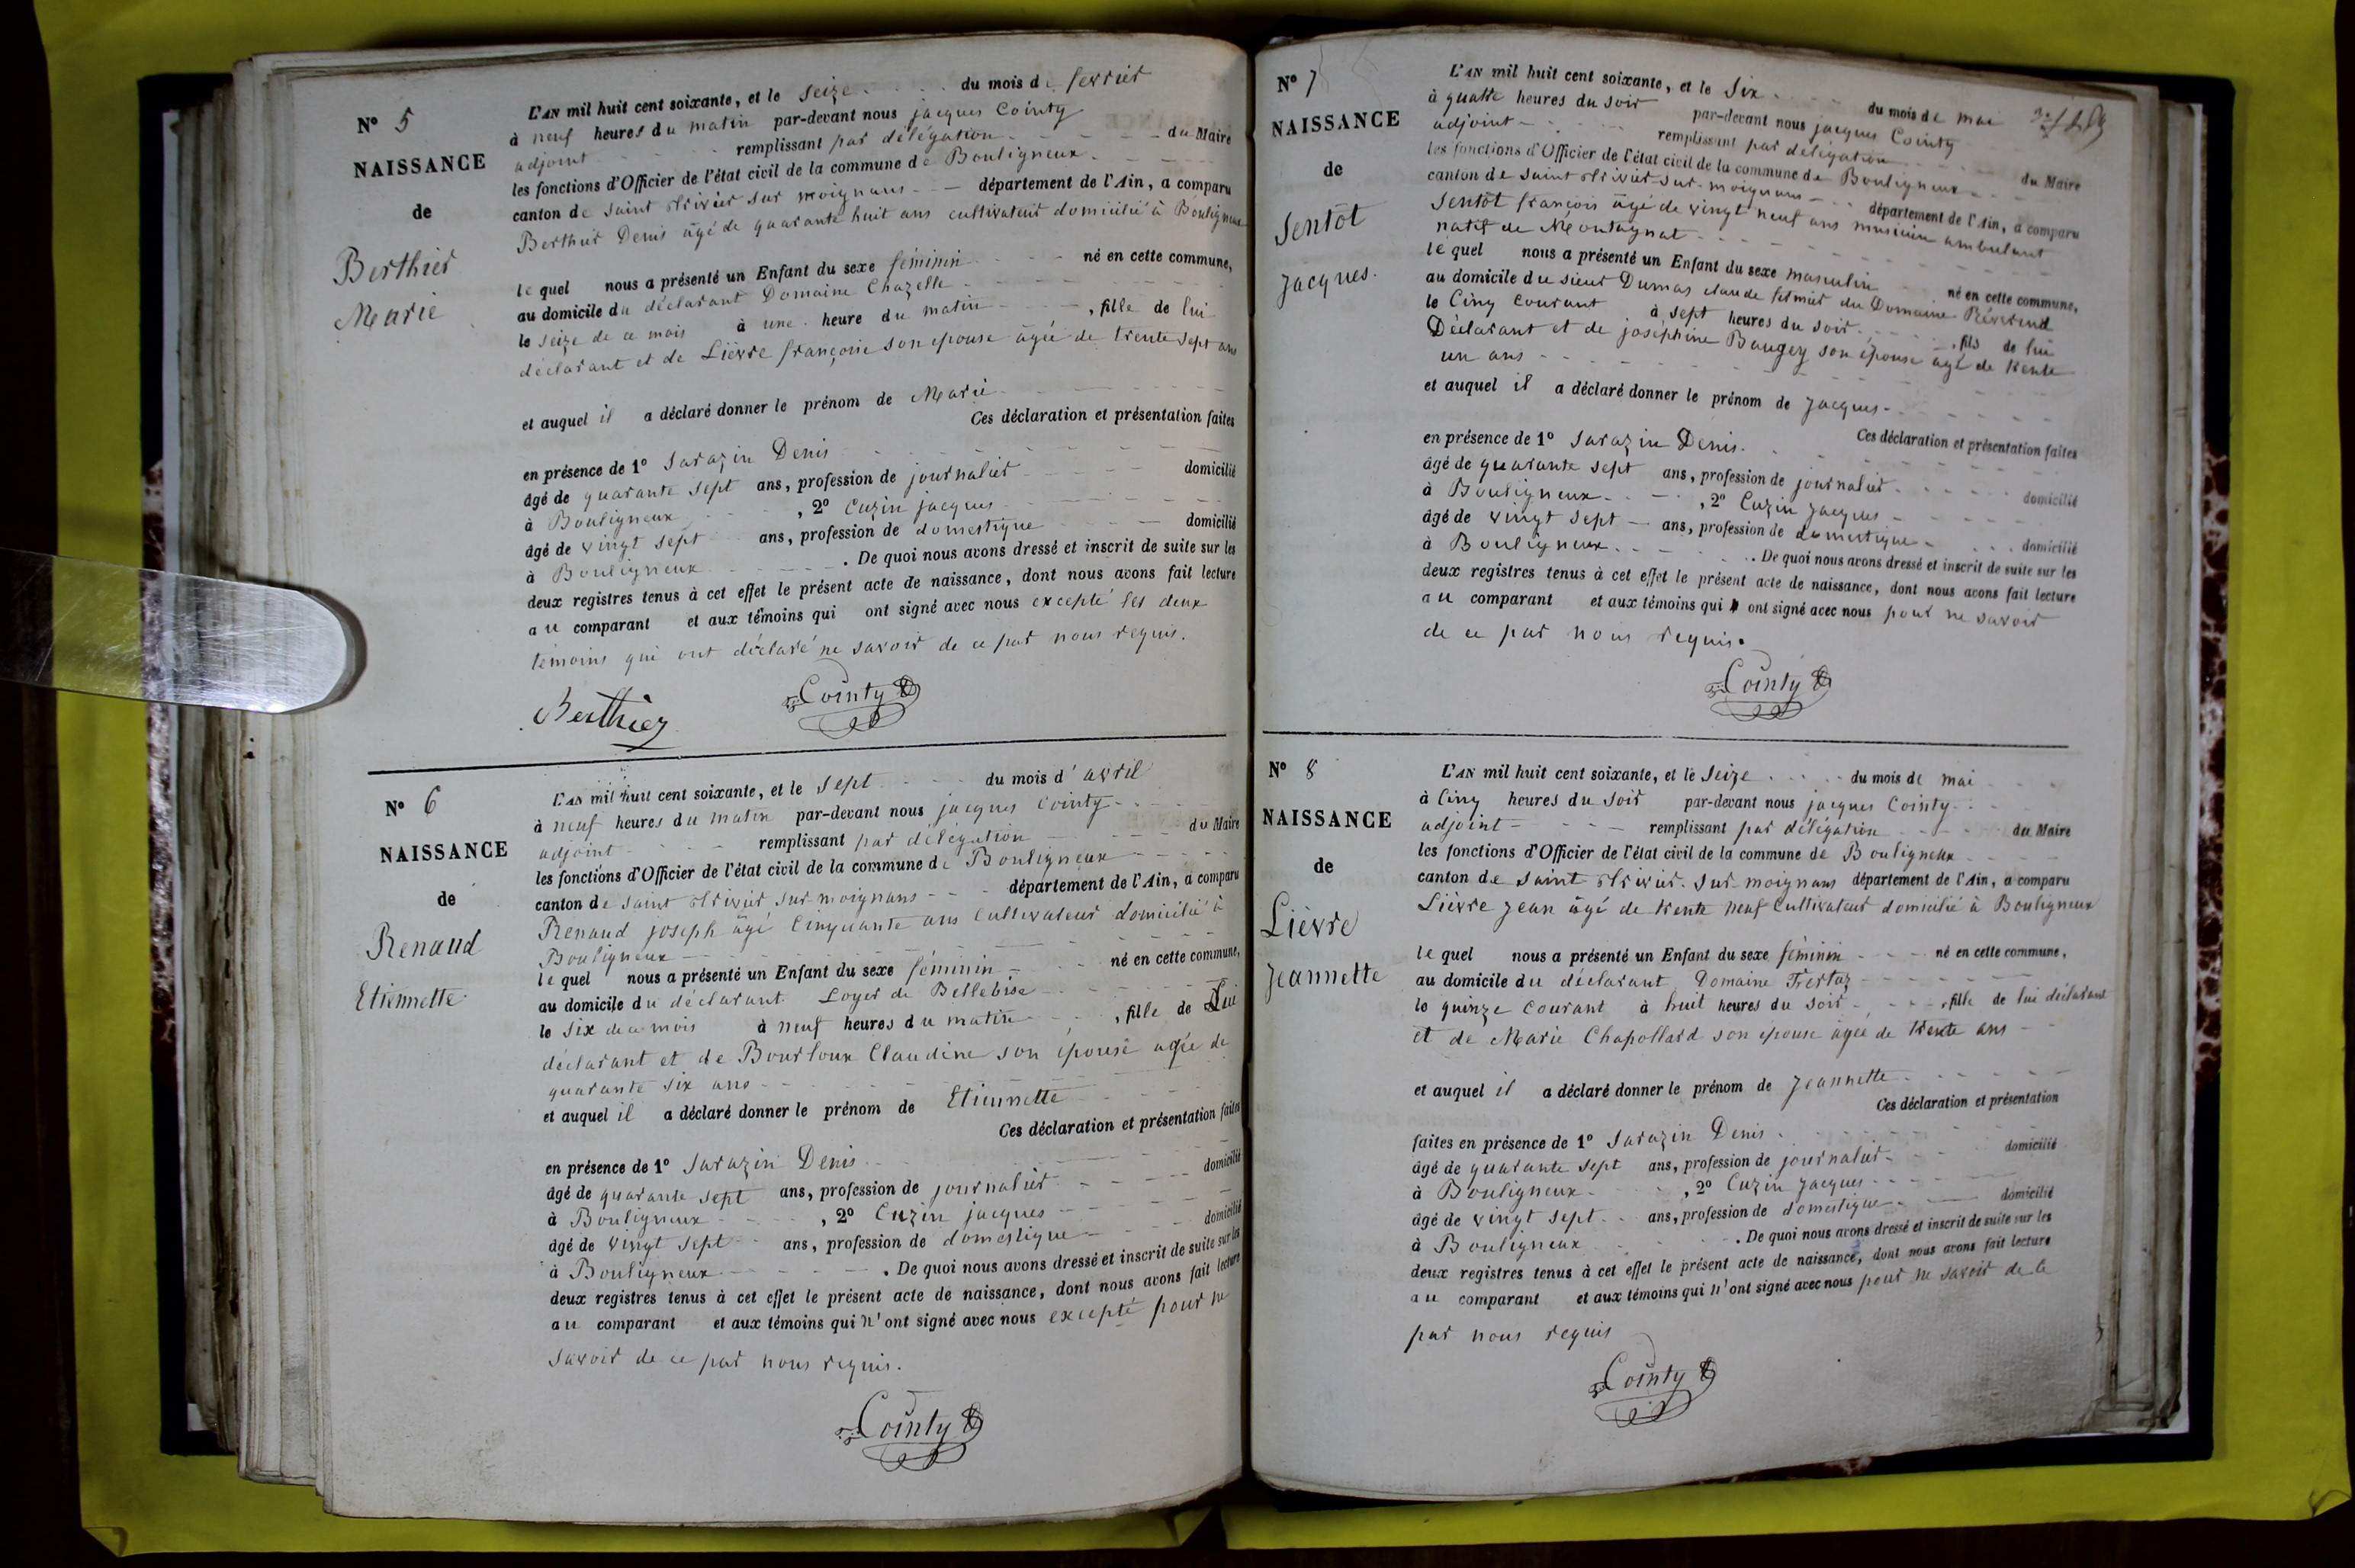 N° 5
NAISSANCE
de
Berthier
Marie
L'AN mil huit cent soixante, et le seize du mois de fevrier
à neuf heures du matin par-devant nous jacques Cointy
adjoint remplissant par délégation du Maire
les fonctions d'Officier de l'état civil de la commune de Bouligneux
canton de saint trivier sur moignans département de l'Ain, a comparu
Berthier Denis âgé de quarante huit ans cultivateur domicilié à Bouligneux
lequel nous a présenté un Enfant du sexe féminin né en cette commune,
au domicile du déclarant Domaine Chazelle
le seize de ce mois à une heure du matin, fille de lui
déclarant et de Lièvre françoise son epouse âgée de trente sept ans
et auquel il a déclaré donner le prénom de Marie
Ces déclaration et présentation faites
en présence de 1° Sarazin Denis
âgé de quarante sept ans, profession de journalier domicilié
à Bouligneux, 2° Cuzin jacques
âgé de vingt sept ans, profession de domestique domicilié
à Bouligneux. De quoi nous avons dressé et inscrit de suite sur les
deux registres tenus à cet effet le présent acte de naissance, dont nous avons fait lecture
au comparant et aux témoins qui ont signé avec nous excepté les deux
témoins qui ont déclaré ne savoir de ce par nous requis.
Berthier Cointy
N° 6
NAISSANCE
de
Renaud
Etiennette
L'AN mil huit cent soixante, et le sept du mois d'avril
à neuf heures du matin par-devant nous jacques Cointy
adjoint remplissant par délégation du Maire
les fonctions d'Officier de l'état civil de la commune de Bouligneux
canton de saint trivier sur moignans département de l'Ain, a comparu
Renaud joseph âgé cinquante ans cultivateur domicilié à
Bouligneux
lequel nous a présenté un Enfant du sexe féminin né en cette commune,
au domicile du déclarant Loyer de Bellebise
le six de ce mois à neuf heures du matin, fille de Lui
déclarant et de Bourloux Claudine son epouse agée de
quarante six ans
et auquel il a déclaré donner le prénom de Etiennette
Ces déclaration et présentation faites
en présence de 1° Sarazin Denis
âgé de quarante sept ans, profession de journalier domicilié
à Bouligneux, 2° Cuzin jacques
âgé de vingt sept ans, profession de domestique domicilié
à Bouligneux. De quoi nous avons dressé et inscrit de suite sur les
deux registres tenus à cet effet le présent acte de naissance, dont nous avons fait lecture
au comparant et aux témoins qui n'ont signé avec nous excepté pour ne
savoir de ce par nous requis.
Cointy
N° 7
NAISSANCE
de
Sentôt
Jacques.
L'AN mil huit cent soixante, et le six du mois de mai
à quatre heures du soir par-devant nous jacques Cointy
adjoint remplissant par délégation du Maire
les fonctions d'Officier de l'état civil de la commune de Bouligneux
canton de saint trivier-sur-moignans département de l'Ain, a comparu
Sentôt françois âgé de vingt neuf ans musicien ambulant
natif de Montagnat
lequel nous a présenté un Enfant du sexe masculin né en cette commune,
au domicile du sieur Dumas claude fermier du Domaine Révérend
le cinq courant à sept heures du soir, fils de lui
Déclarant et de joséphine Baugey son épouse agé de trente
un ans
et auquel il a déclaré donner le prénom de Jacques
Ces déclaration et présentation faites
en présence de 1° Sarazin Denis.
âgé de quarante sept ans, profession de journalier domicilié
à Bouligneux, 2° Cuzin Jacques
âgé de vingt sept ans, profession de domestique domicilié
à Bouligneux. De quoi nous avons dressé et inscrit de suite sur les
deux registres tenus à cet effet le présent acte de naissance, dont nous avons fait lecture
au comparant et aux témoins qui ont signé avec nous pour ne savoir
de ce par nous requis.
Cointy
N° 8
NAISSANCE
de
Lièvre
Jeannette
L'AN mil huit cent soixante, et le seize du mois de mai
à cinq heures du soir par-devant nous jacques Cointy
adjoint remplissant par délégation du Maire
les fonctions d'Officier de l'état civil de la commune de Bouligneux
canton de saint trivier-sur-moignans département de l'Ain, a comparu
Lièvre Jean âgé de trente neuf cultivateur domicilié à Bouligneux
lequel nous a présenté un Enfant du sexe féminin né en cette commune,
au domicile du déclarant Domaine
le quinze courant à huit heures du soir, fille de lui déclarant
et de Marie Chapollard son epouse agée de trente ans
et auquel il a déclaré donner le prénom de Jeannette
Ces déclaration et présentation
faites en présence de 1° Sarazin Denis
âgé de quarante sept ans, profession de journalier domicilié
à Bouligneux, 2° Cuzin Jacques
âgé de vingt sept ans, profession de domestique domicilié
à Bouligneux. De quoi nous avons dressé et inscrit de suite sur les
deux registres tenus à cet effet le présent acte de naissance, dont nous avons fait lecture
au comparant et aux témoins qui n'ont signé avec nous pour ne savoir de ce
par nous requis
Cointy